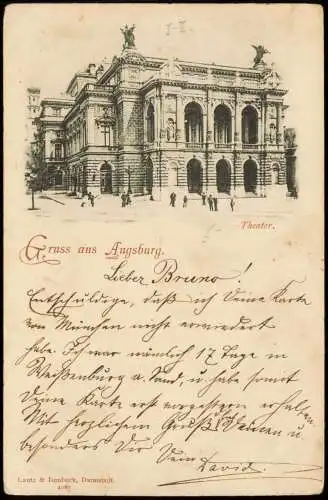 Theater.
Gruss aus Augsburg.
Lieber Bruno!
Entschuldige, daß ich Deine Karte
von München nicht erwiedert
habe. Ich war nämlich 17 Tage in
Weißenburg a. Sand, u. habe somit
Deine Karte erst vorgestern erhalten.
Mit herzlichem Gruß a. Deinen u.
besonders Dir Dein
David.
Lautz & Isenbeck, Darmstadt.